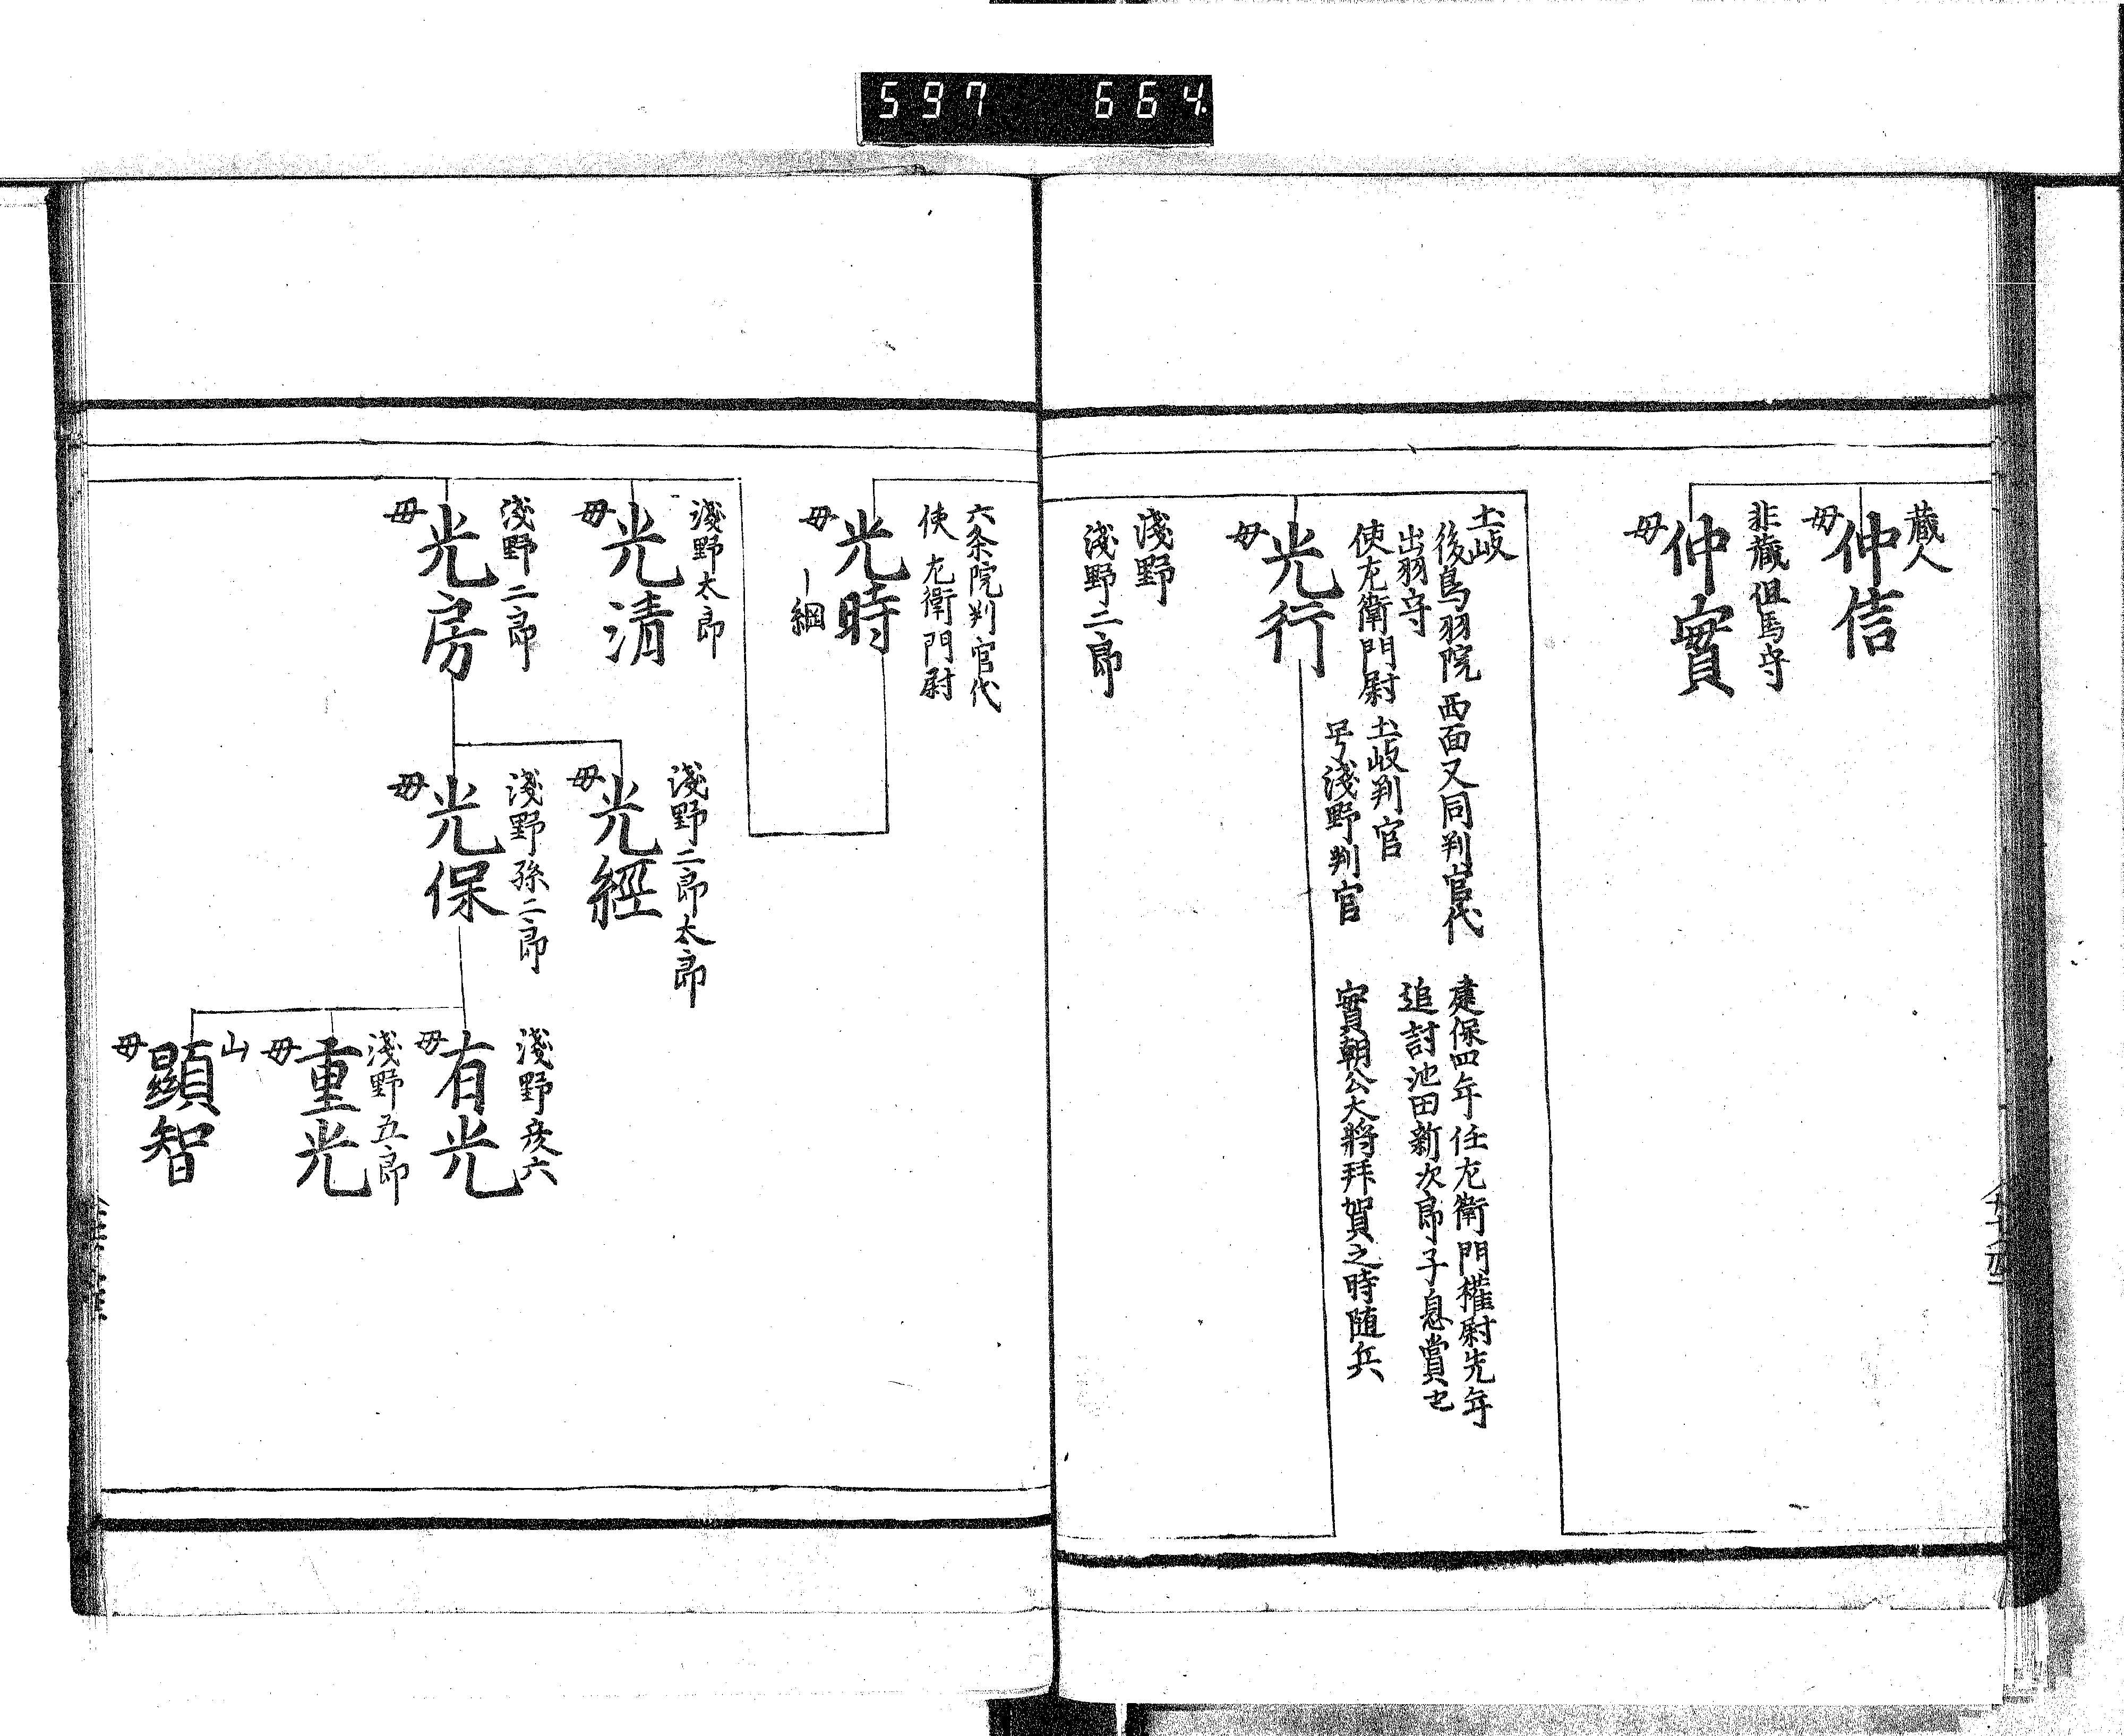 597 664
蔵人
仲信
母
非蔵但馬守
仲實
母
土岐
後鳥羽院西面又同判官代
出羽守
使左衛門尉
土岐判官
号浅野判官
建保四年任左衛門権尉先年
追討池田新次郎子息賞也
實朝公大将拜賀之時随兵
光行
母
淺野
淺野二郎
六条院判官代
使左衛門尉
光時
母
綱
淺野太郎
光清
母
淺野二郎
光房
母
淺野二郎太郎
光經
母
淺野孫二郎
光保
母
淺野彦六
有光
母
淺野五郎
重光
母
山
顯智
母